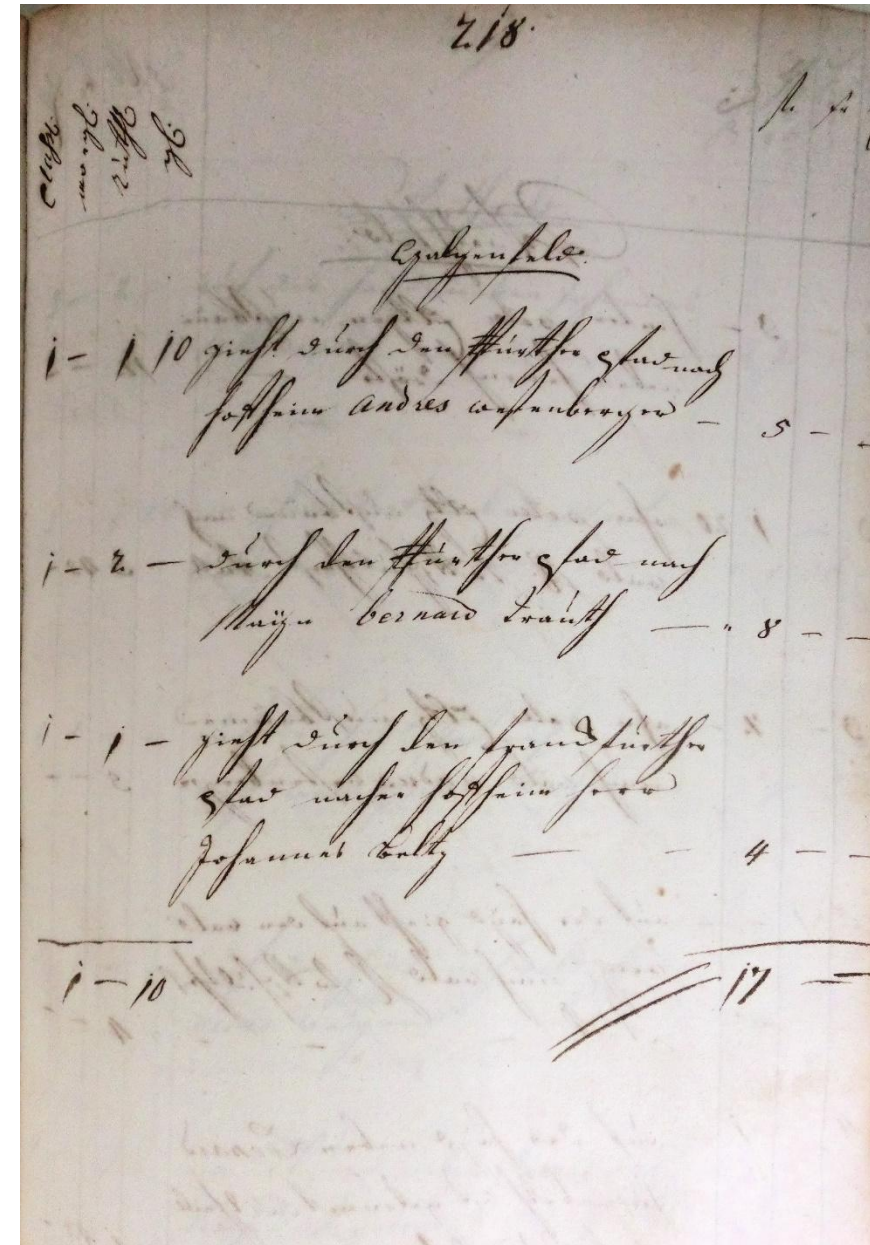 218.
Class.
Morg
Ruth
Sch
fl. xr
Galgenfeld.
1 - 1 10 zieht durch den ffurther pfad nach
hoffheim andres westenberger - 5 -
1 - 2 - durch den ffurther pfad nach
Mayn bernard Trauth - 8 - -
1 - 1 - zieht durch den franckfurther
pfad nacher hoffheim herr
Johannes Beltz - - 4 - -
1 - 10 17 -